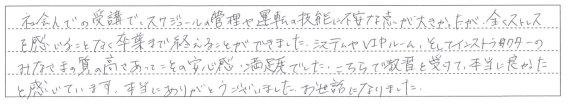 社会人での受講で、スケジュールの管理や運転の技能に不安な点が大きかったが、全くストレス
を感じることなく卒業まで終えることができました。システムやVIPルーム、そしてインストラクターの
みなさまの質の高さあってこその安心感、満足度でした。こちらで教習を受けて、本当に良かった
と感じています。本当にありがとうございました。お世話になりました。